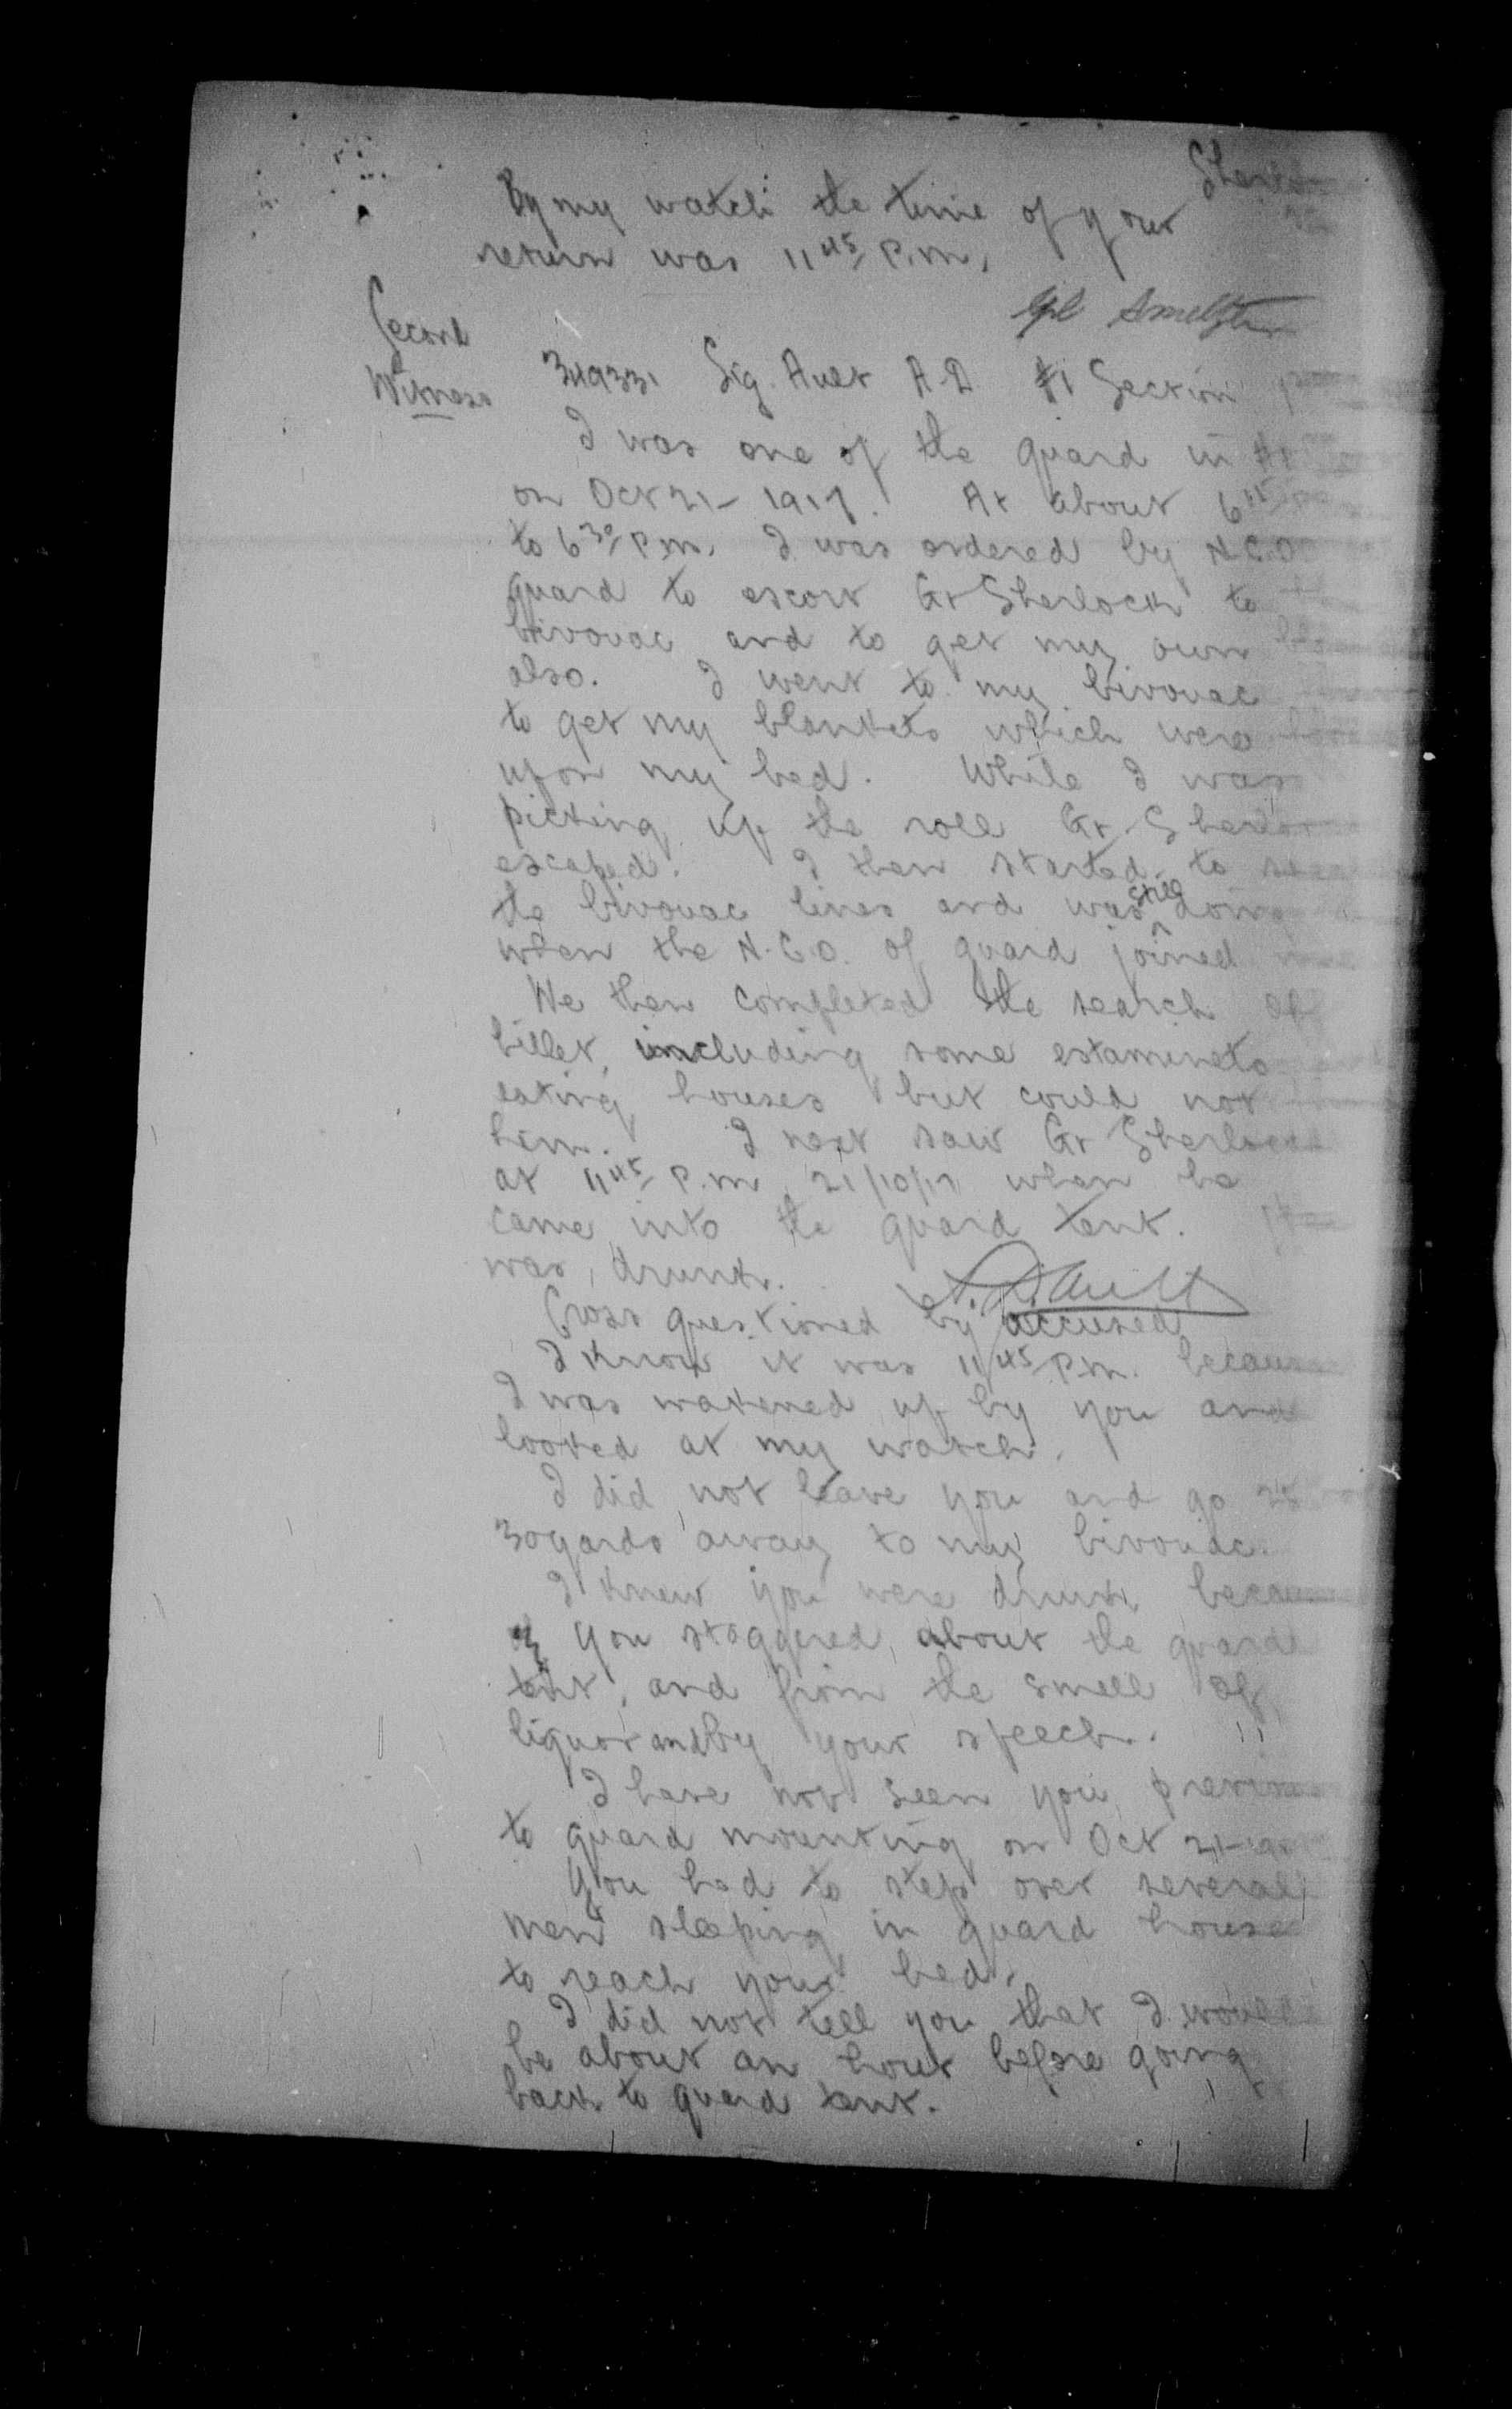 Sherlo
By my watch the time of your
return was 11 45/ P.m.
Cpl Smelt
Second
Witness
349331 Sig. Ault A.D #1 Section
I was one of the guard in
on Oct 21 - 1917. At about 6 15
to 6 30/ P.m. I was ordered by N.C.O
guard to escort Gr Sherlock to
bivouac and to get my own
also. I went to my bivouac
to get my blankets which were
upon my bed. While I was
picking up the roll Gr. Sherlo
escaped. I then started to
the bivouac lines and was still doing
when the N.C.O. of guard joined me
We then completed the search of
billet, including some estaminets
eating houses but could not
him. I next saw Gr Sherlock
at 11 45/ P.m 21/10/17 when he
came into the guard tent.
was drunk. A.D. Ault
Cross questioned by accused
I know it was 11 45/ P.m. because
I was wakened up by you and
looked at my watch.
I did not leave you and go 25
30 yards away to my bivouac.
I knew you were drunk because
you staggered about the guard
tent, and from the smell of
liquor and by your speech.
I have not seen you previous
to guard mounting on Oct 21-
You had to step over several
men sleeping in guard house
to reach your bed.
I did not tell you that I would
be about an hour before going
back to guard tent.